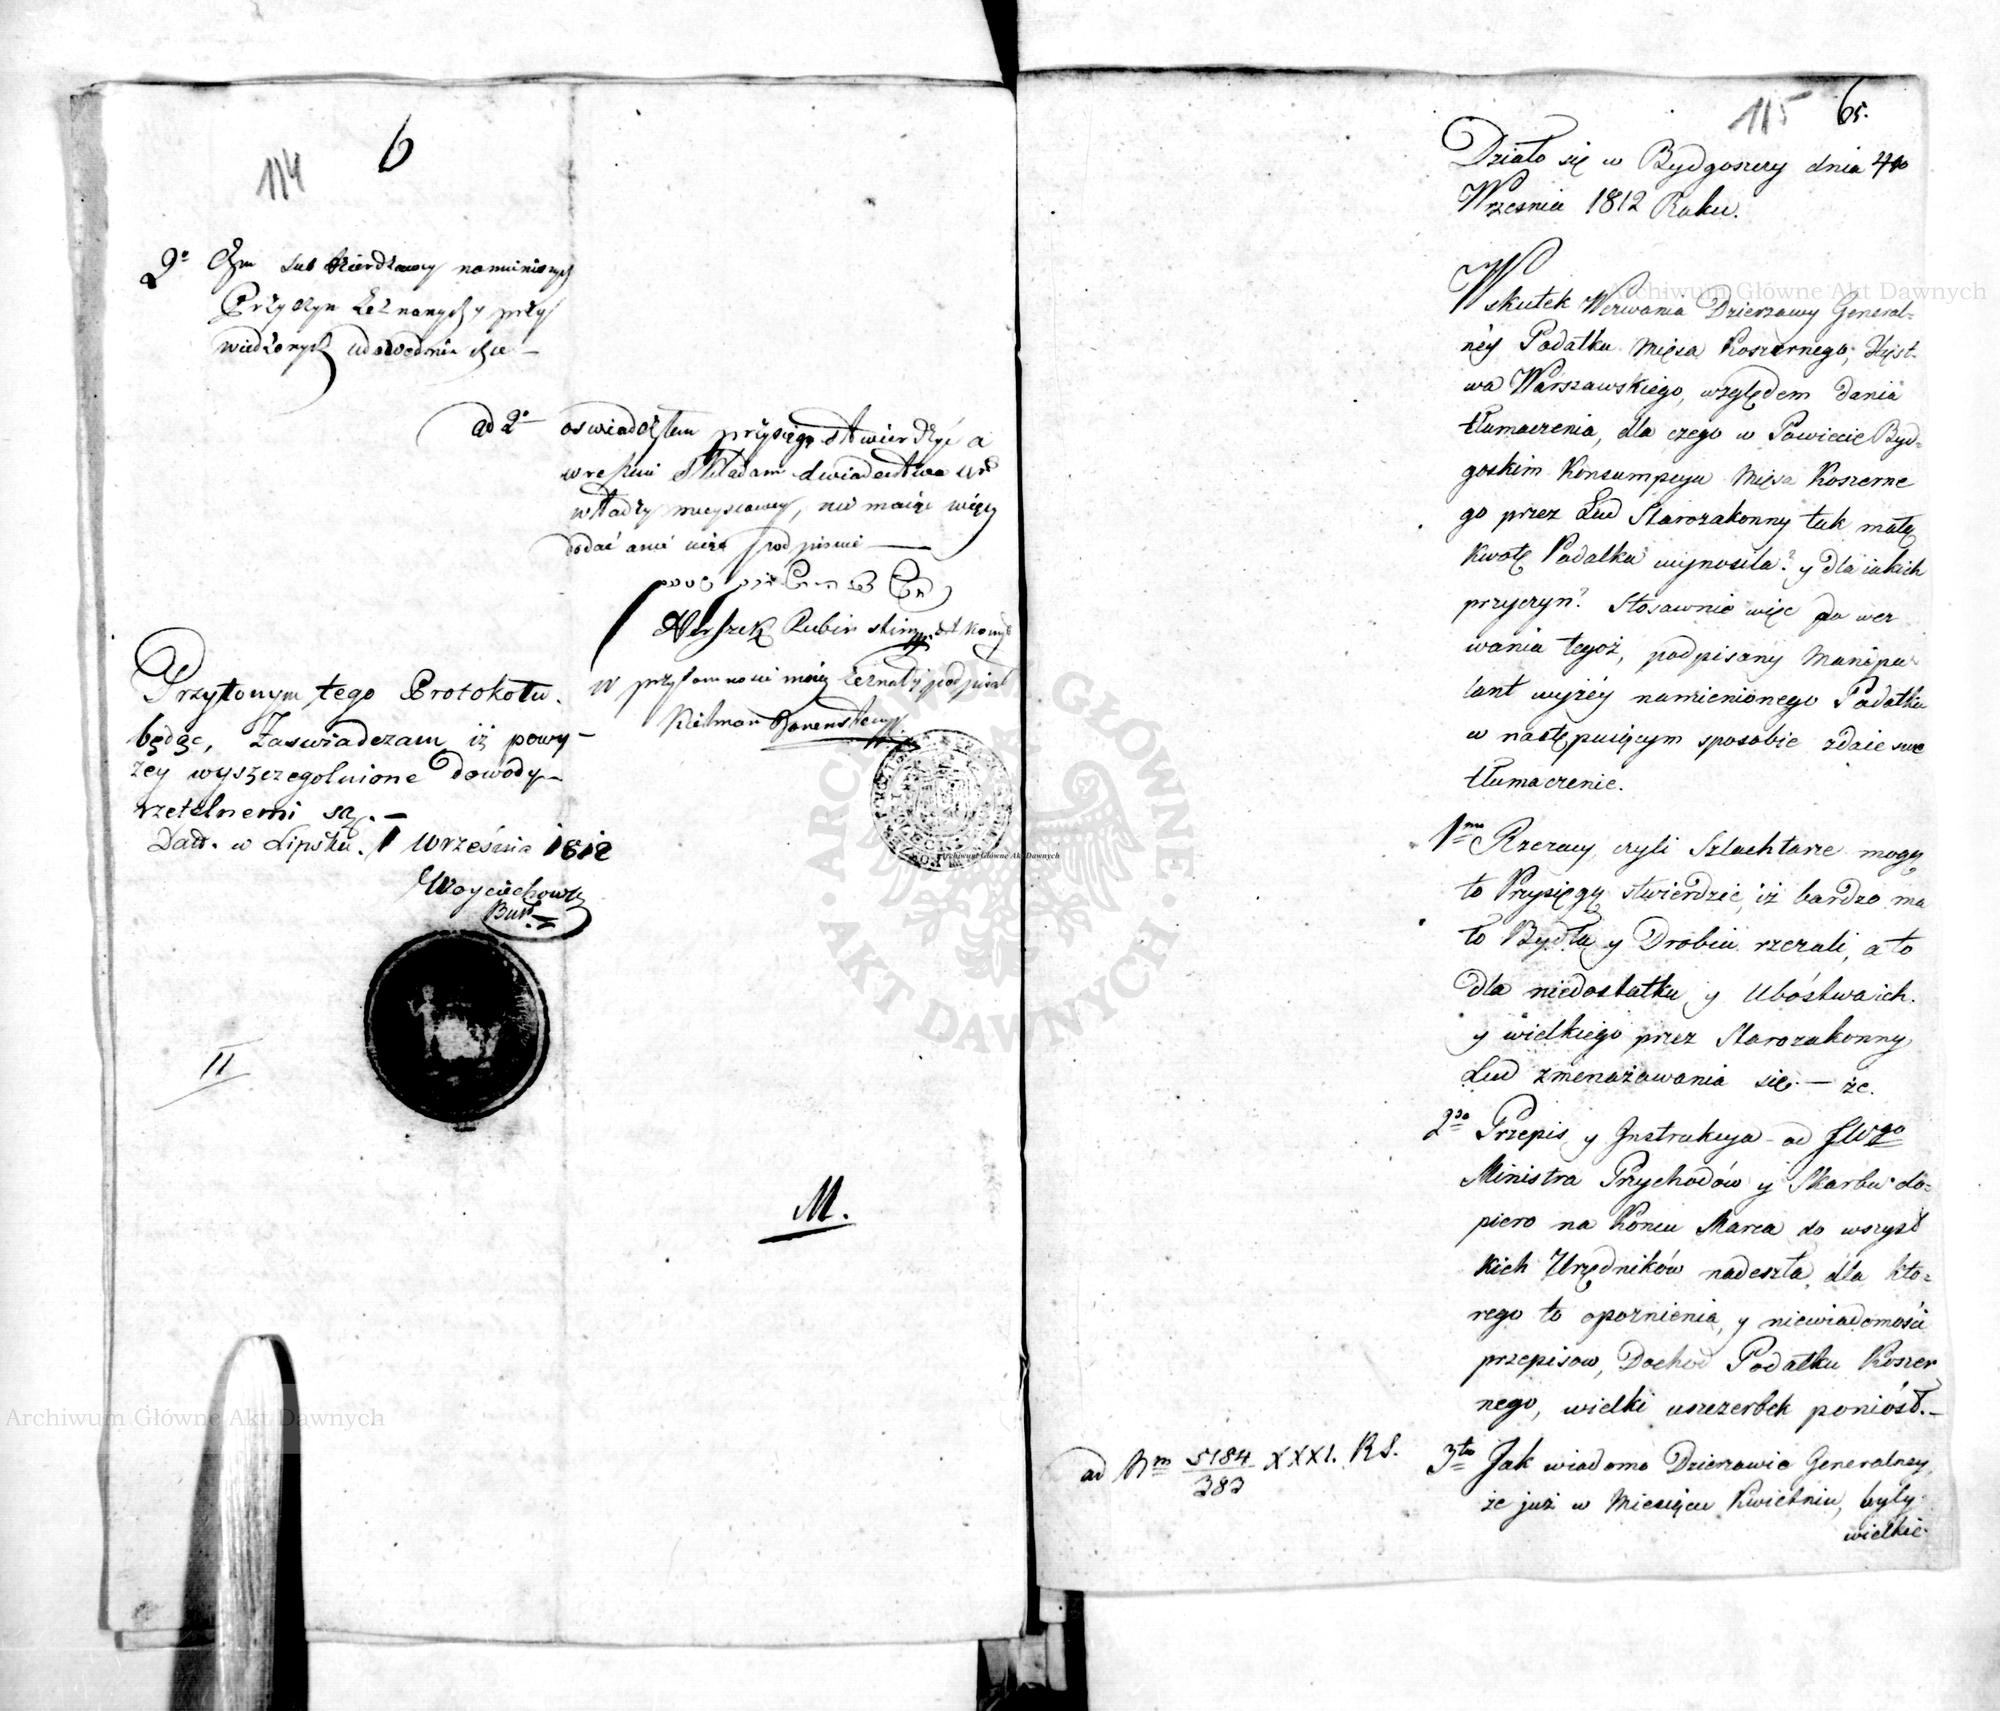 114
6
2o Czem sub dzierdzawcy namienionych
Przyczyn zeznanych y przy
wiedzionych udowodnia się —
ad 2o oswiadczam przysięgą stwierdzyć a
wreszcie składam swiadectwa
władzy mieyscowey, nie maiąc więcy
dodać anie uiąć podpisuie —
Herszek Rubin
w przytomnosci moiey zeznał y podpisał
Przytomym tego Protokołu
będąc, Zaswiadczam iż powy-
zey wyszczegolnione dowody
rzetelnemi są. —
Datt. w Lipsku. 1 Września 1812
Woyciechowski
Bur.
II
M.
115
65.
Działo się w Bydgoszczy dnia 4go
Wrzesnia 1812 Roku.
W skutek Wezwania Dzierzawy General-
néy Podatku Mięsa Koszernego, Xięst-
wa Warszawskiego, względem dania
tłumaczenia, dla czego w Powiecie Byd-
goskim Konsumpcya Mięsa Koszerne
go przez Lud Starozakonny tak małą
kwotę Podatku wynosiła? y dla iakich
przyczyn? Stosownie więc do wez
wania tegoż, podpisany Manipu-
lant wyżéy namienionego Podatku
w następuiącym sposobie zdaie swe
tłumaczenie.
1mo Rzezacy czyli Szlachtarze mogą
to Przysięgą stwierdzic, iż bardzo ma
ło Bydła y Drobiu rzezali, a to
dla niedostatku y Ubóstwa ich.
y wielkiego przez Starozakonny
Lud zmenażowania się. — że.
2do Przepis y Instrukcya od JWgo
Ministra Przychodów y Skarbu do-
piero na Koncu Marca do wszyst
kich Urzędników nadeszła, dla kto-
rego to opoznienia, y niewiadomości
przepisow, Dochod Podatku Koszer
nego, wielki uszczerbek poniósł. —
ad Nm 5184/383 XXXI. R S.
3tio Jak wiadomo Dzierzawie Generalney
że już w Miesiącu Kwietniu, były
wielkie